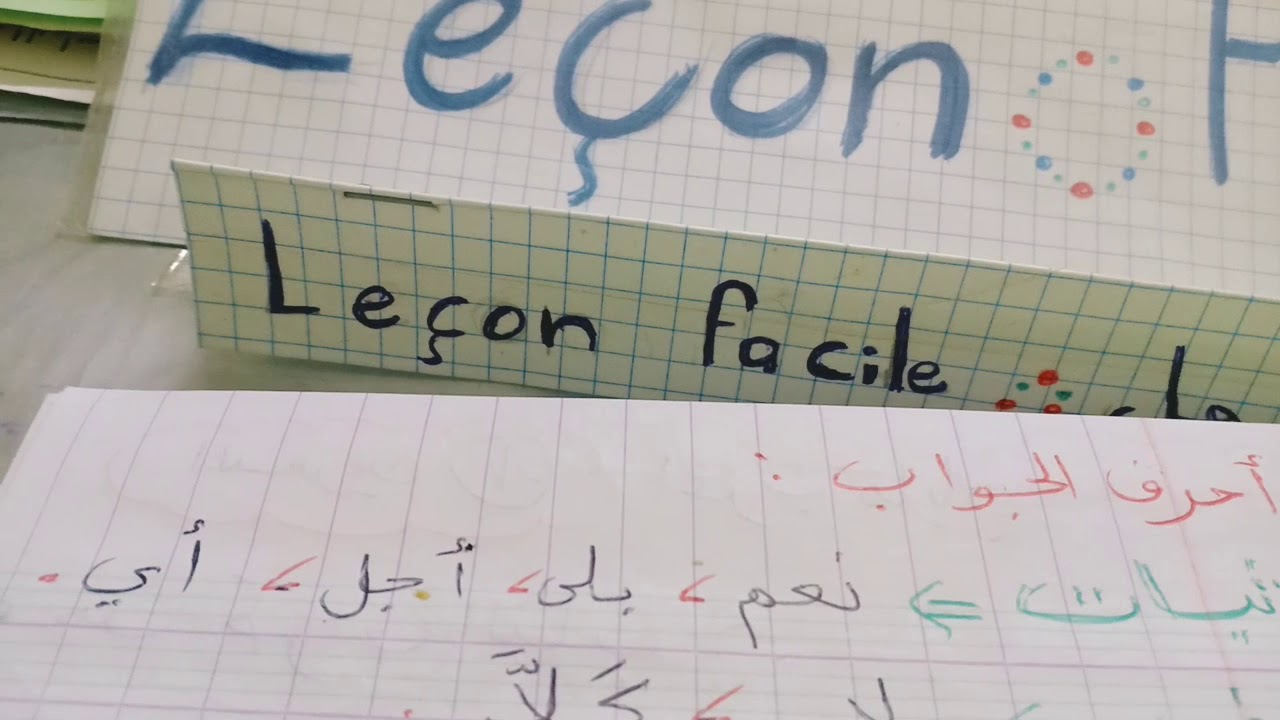 Leçon
Leçon facile
أحرف الجواب :
نعم، بلى، أجل، أي .
لا، كَلَّا